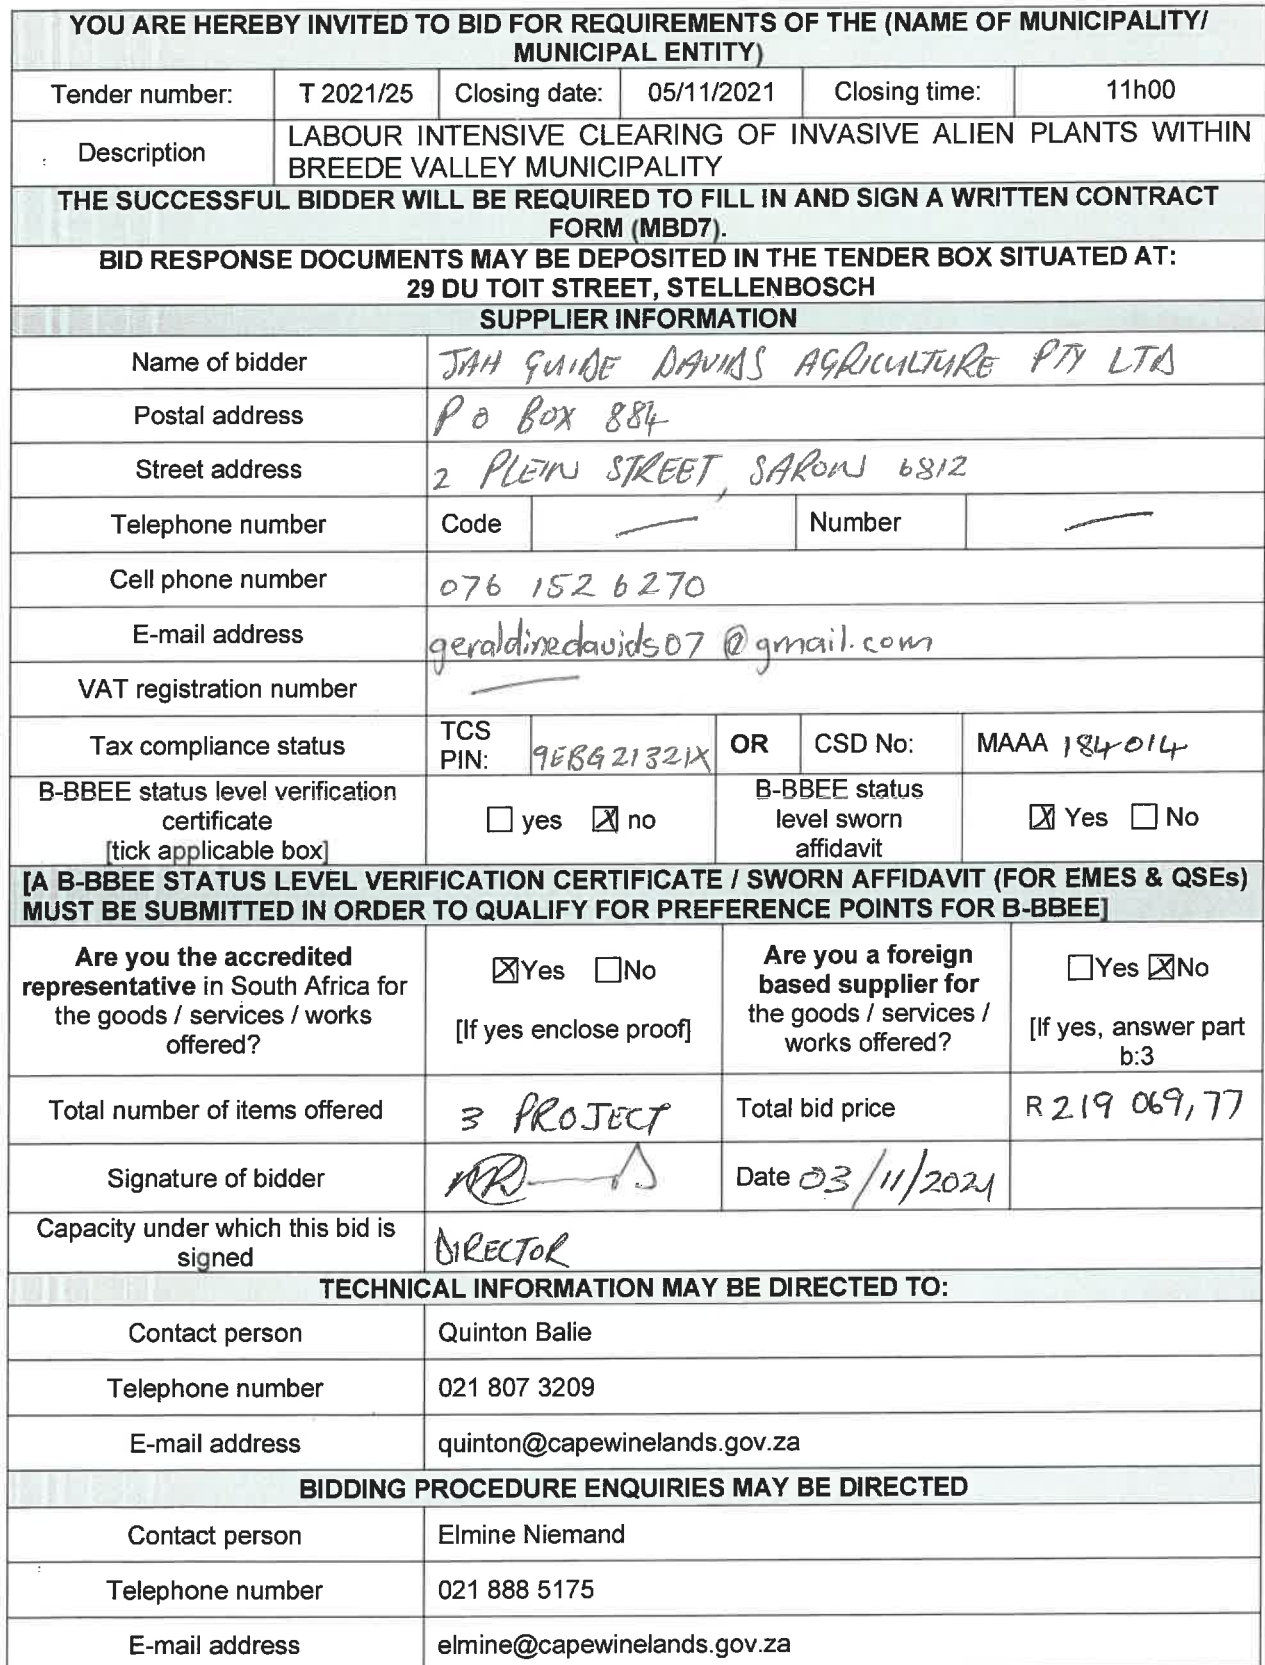 YOU ARE HEREBY INVITED TO BID FOR REQUIREMENTS OF THE (NAME OF MUNICIPALITY/
MUNICIPAL ENTITY)
Tender number: T 2021/25 Closing date: 05/11/2021 Closing time: 11h00
Description LABOUR INTENSIVE CLEARING OF INVASIVE ALIEN PLANTS WITHIN
BREEDE VALLEY MUNICIPALITY
THE SUCCESSFUL BIDDER WILL BE REQUIRED TO FILL IN AND SIGN A WRITTEN CONTRACT
FORM (MBD7).
BID RESPONSE DOCUMENTS MAY BE DEPOSITED IN THE TENDER BOX SITUATED AT:
29 DU TOIT STREET, STELLENBOSCH
SUPPLIER INFORMATION
Name of bidder JAH GUIDE DAVIDS AGRICULTURE PTY LTD
Postal address P O BOX 884
Street address 2 PLEIN STREET, SARON 6812
Telephone number Code — Number —
Cell phone number 076 152 6270
E-mail address geraldinedavids07@gmail.com
VAT registration number —
Tax compliance status TCS PIN: 9EBG21321X OR CSD No: MAAA 184014
B-BBEE status level verification
certificate
[tick applicable box] ☐ yes ☒ no B-BBEE status
level sworn
affidavit ☒ Yes ☐ No
[A B-BBEE STATUS LEVEL VERIFICATION CERTIFICATE / SWORN AFFIDAVIT (FOR EMES & QSEs)
MUST BE SUBMITTED IN ORDER TO QUALIFY FOR PREFERENCE POINTS FOR B-BBEE]
Are you the accredited
representative in South Africa for
the goods / services / works
offered? ☒Yes ☐No
[If yes enclose proof]
Are you a foreign
based supplier for
the goods / services /
works offered? ☐Yes ☒No
[If yes, answer part
b:3
Total number of items offered 3 PROJECT Total bid price R 219 069,77
Signature of bidder Date 03/11/2021
Capacity under which this bid is
signed DIRECTOR
TECHNICAL INFORMATION MAY BE DIRECTED TO:
Contact person Quinton Balie
Telephone number 021 807 3209
E-mail address quinton@capewinelands.gov.za
BIDDING PROCEDURE ENQUIRIES MAY BE DIRECTED
Contact person Elmine Niemand
Telephone number 021 888 5175
E-mail address elmine@capewinelands.gov.za